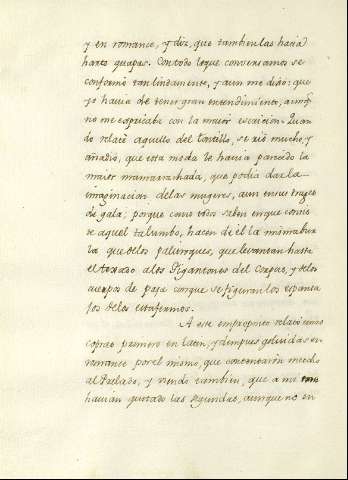 y en romance, y diz, que tambien las hacia
hartas guapas. Con todo lo que conversamos se
conformó tan lindamente, y aun me dixo: que
yo havia de tener gran entendimiento, aunq.
no me explicaba con la maior Quan
do relacé aquello del tontillo, se rió mucho, y
añadio, que esta moda le havia parecido la
maior mamarrachada, que podia dar la
imaginacion de las mugeres, aun en sus trages
de gala; porque como todos saben en que consis
te aquel talumbo, hacen de él la misma bur
la que de los palitroques, que levantan hasta
el texado a los Gigantones del Corpus, y de los
cuerpos de paja conque se figuran los espanta
jos de los
A este relacé unas
coplas primero en latin, y despues bolvidas en
romance por el mismo, que contentaron mucho
al Prelado, y viendo tambien, que a mi me
havian gustado las segundas, aunque no en